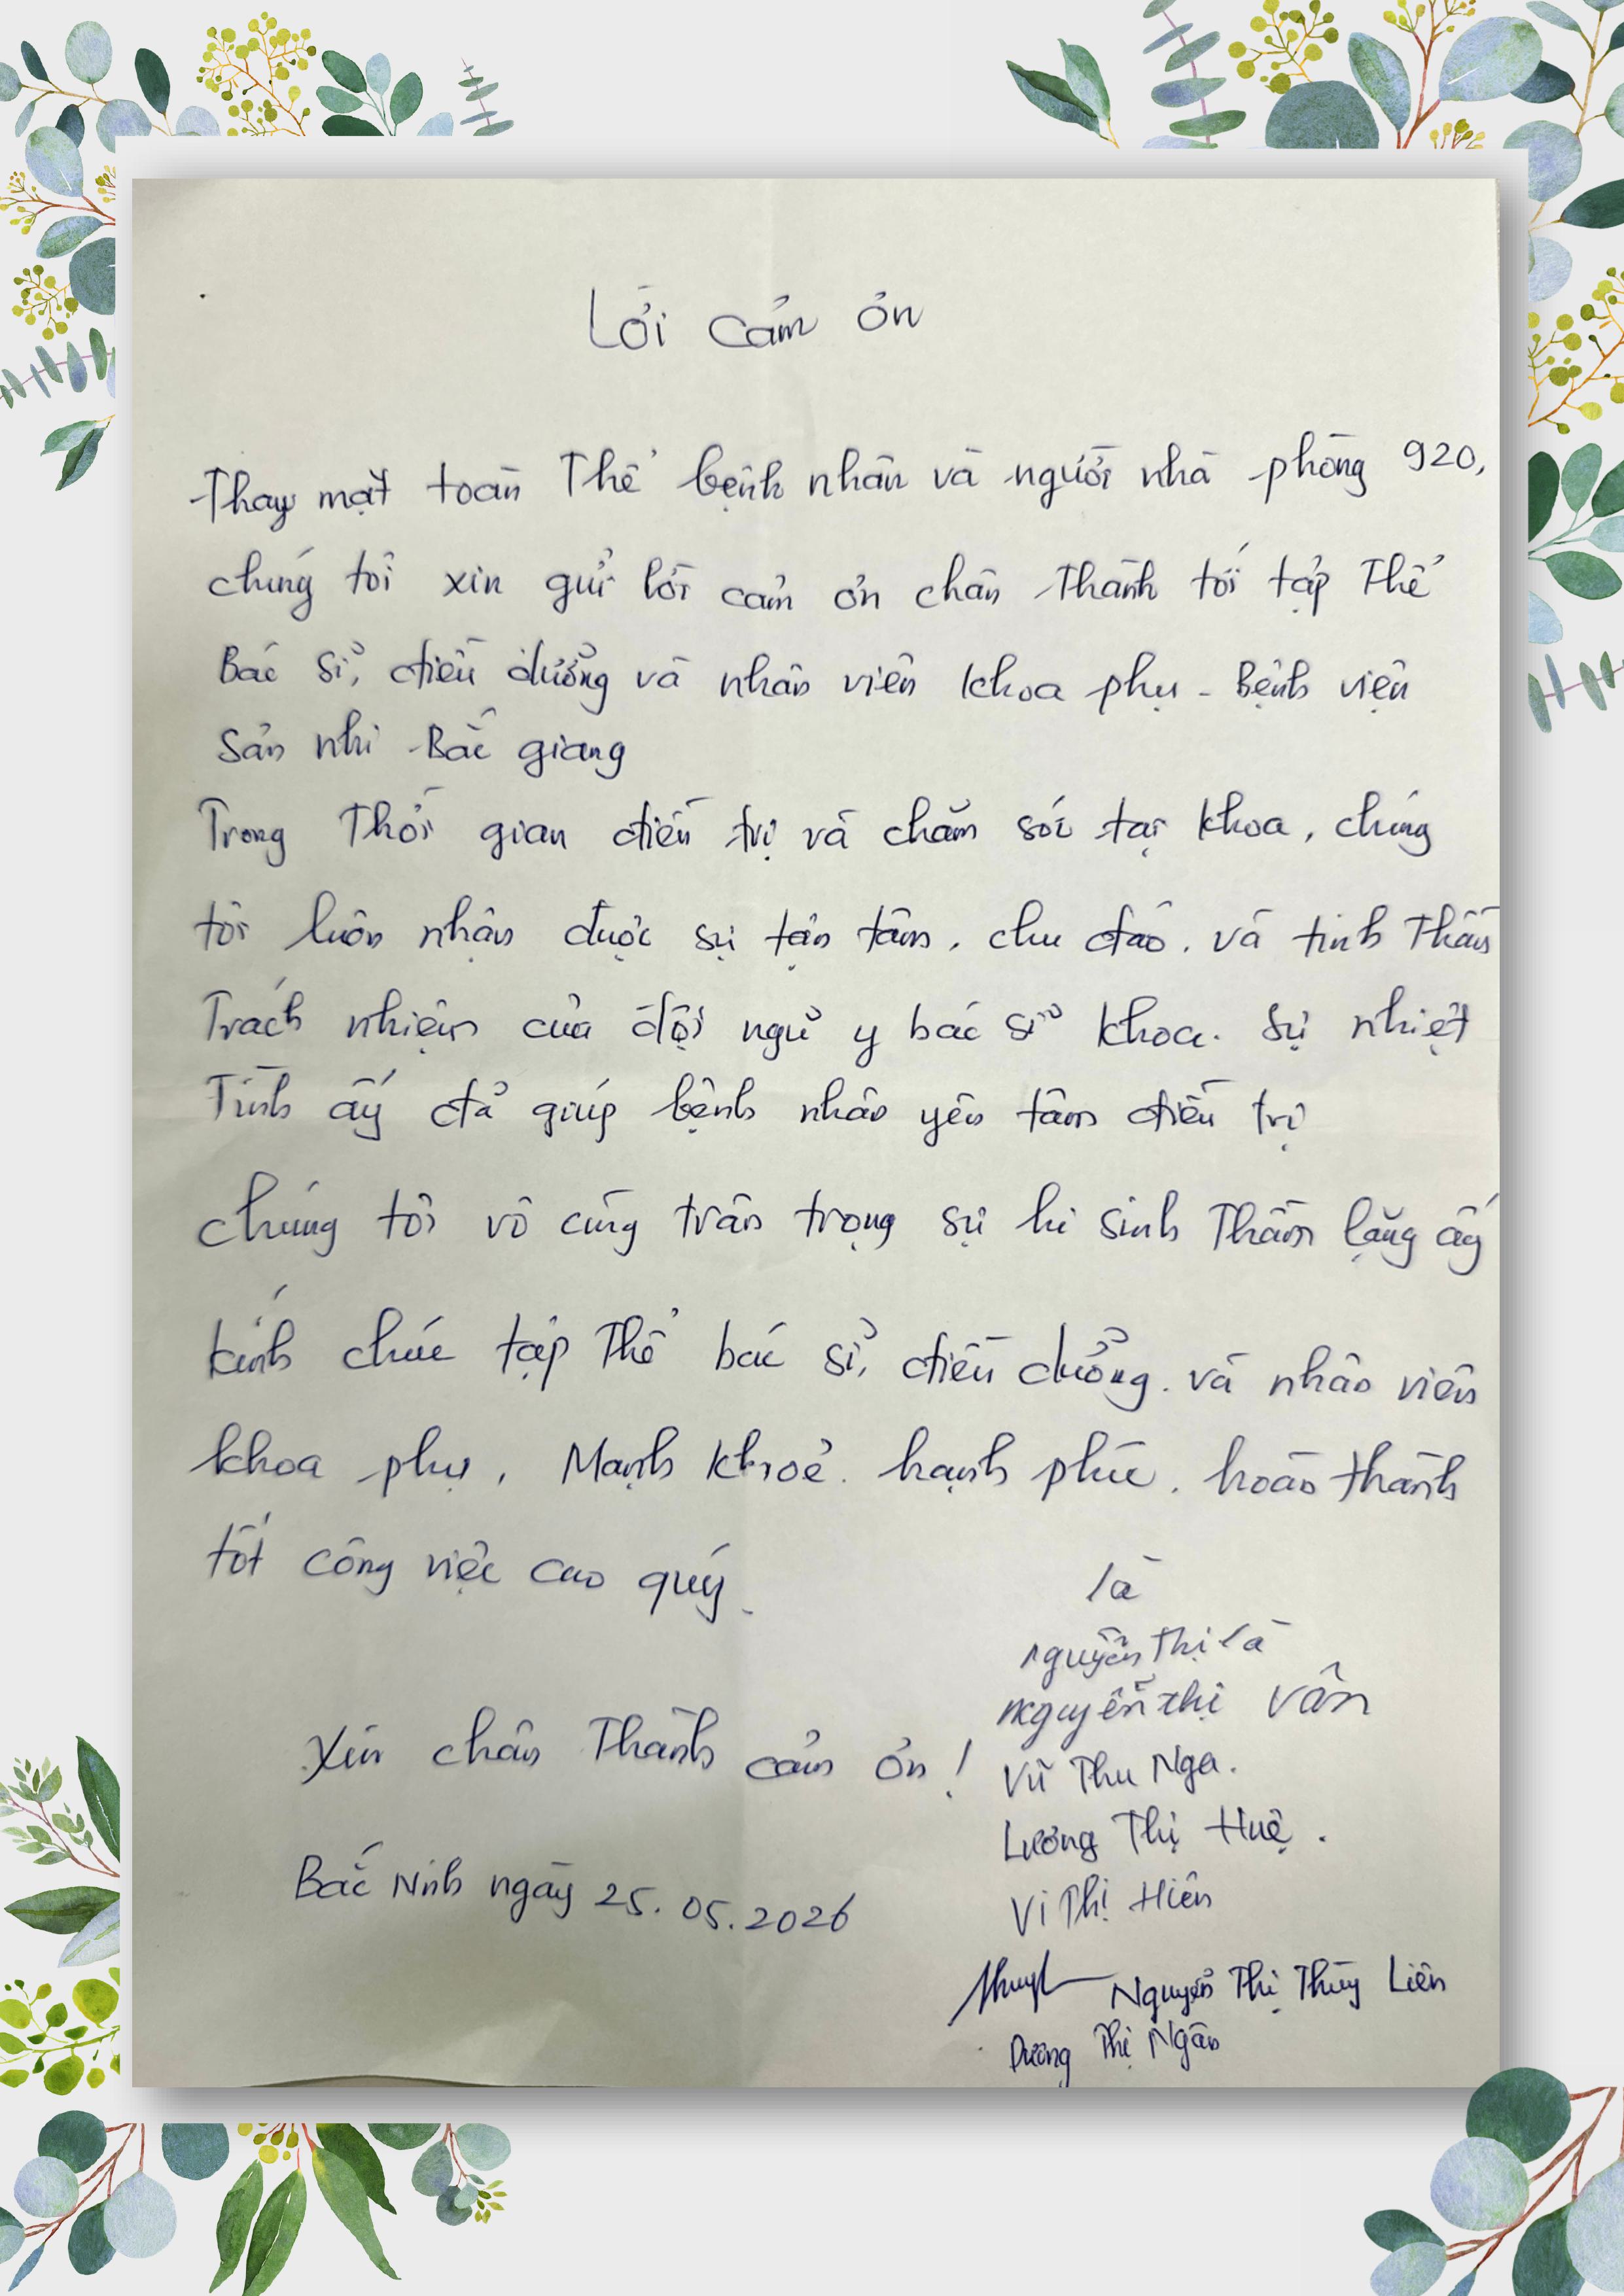 Lời cảm ơn
Thay mặt toàn thể bệnh nhân và người nhà phòng 920,
chúng tôi xin gửi lời cảm ơn chân thành tới tập thể
Bác sĩ, điều dưỡng và nhân viên khoa phụ - Bệnh viện
Sản nhi Bắc giang
Trong thời gian điều trị và chăm sóc tại khoa, chúng
tôi luôn nhận được sự tận tâm, chu đáo, và tinh thần
Trách nhiệm của đội ngũ y bác sĩ khoa. Sự nhiệt
Tình ấy đã giúp bệnh nhân yên tâm điều trị
chúng tôi vô cùng trân trọng sự hi sinh Thầm lặng ấy
kính chúc tập thể bác sĩ, điều dưỡng. và nhân viên
khoa phụ, Mạnh khoẻ. hạnh phúc. hoàn thành
tốt công việc cao quý.
là
nguyễn Thị là
nguyễn thị vân
Xin chân Thành cảm ơn!
Vũ Thu Nga.
Lương Thị Huệ.
Bắc Ninh ngày 25.05.2026
Vi Thị Hiên
Nguyễn Thị Thùy Liên
Dương Thị Ngân